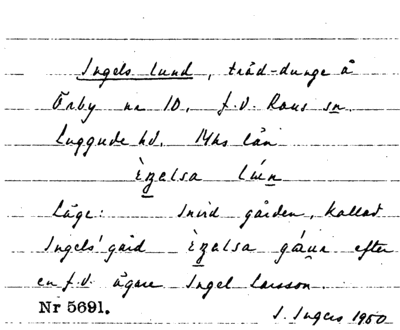 Ingels lund, träd-dunge å
Örby nr 10, f.d. Raus sn.
Luggude hd. Mhs län
Läge: Invid gården, kallad
Ingels' gård efter
en f.d. ägare Ingel Larsson.
Nr 5691.
I. Ingers 1950